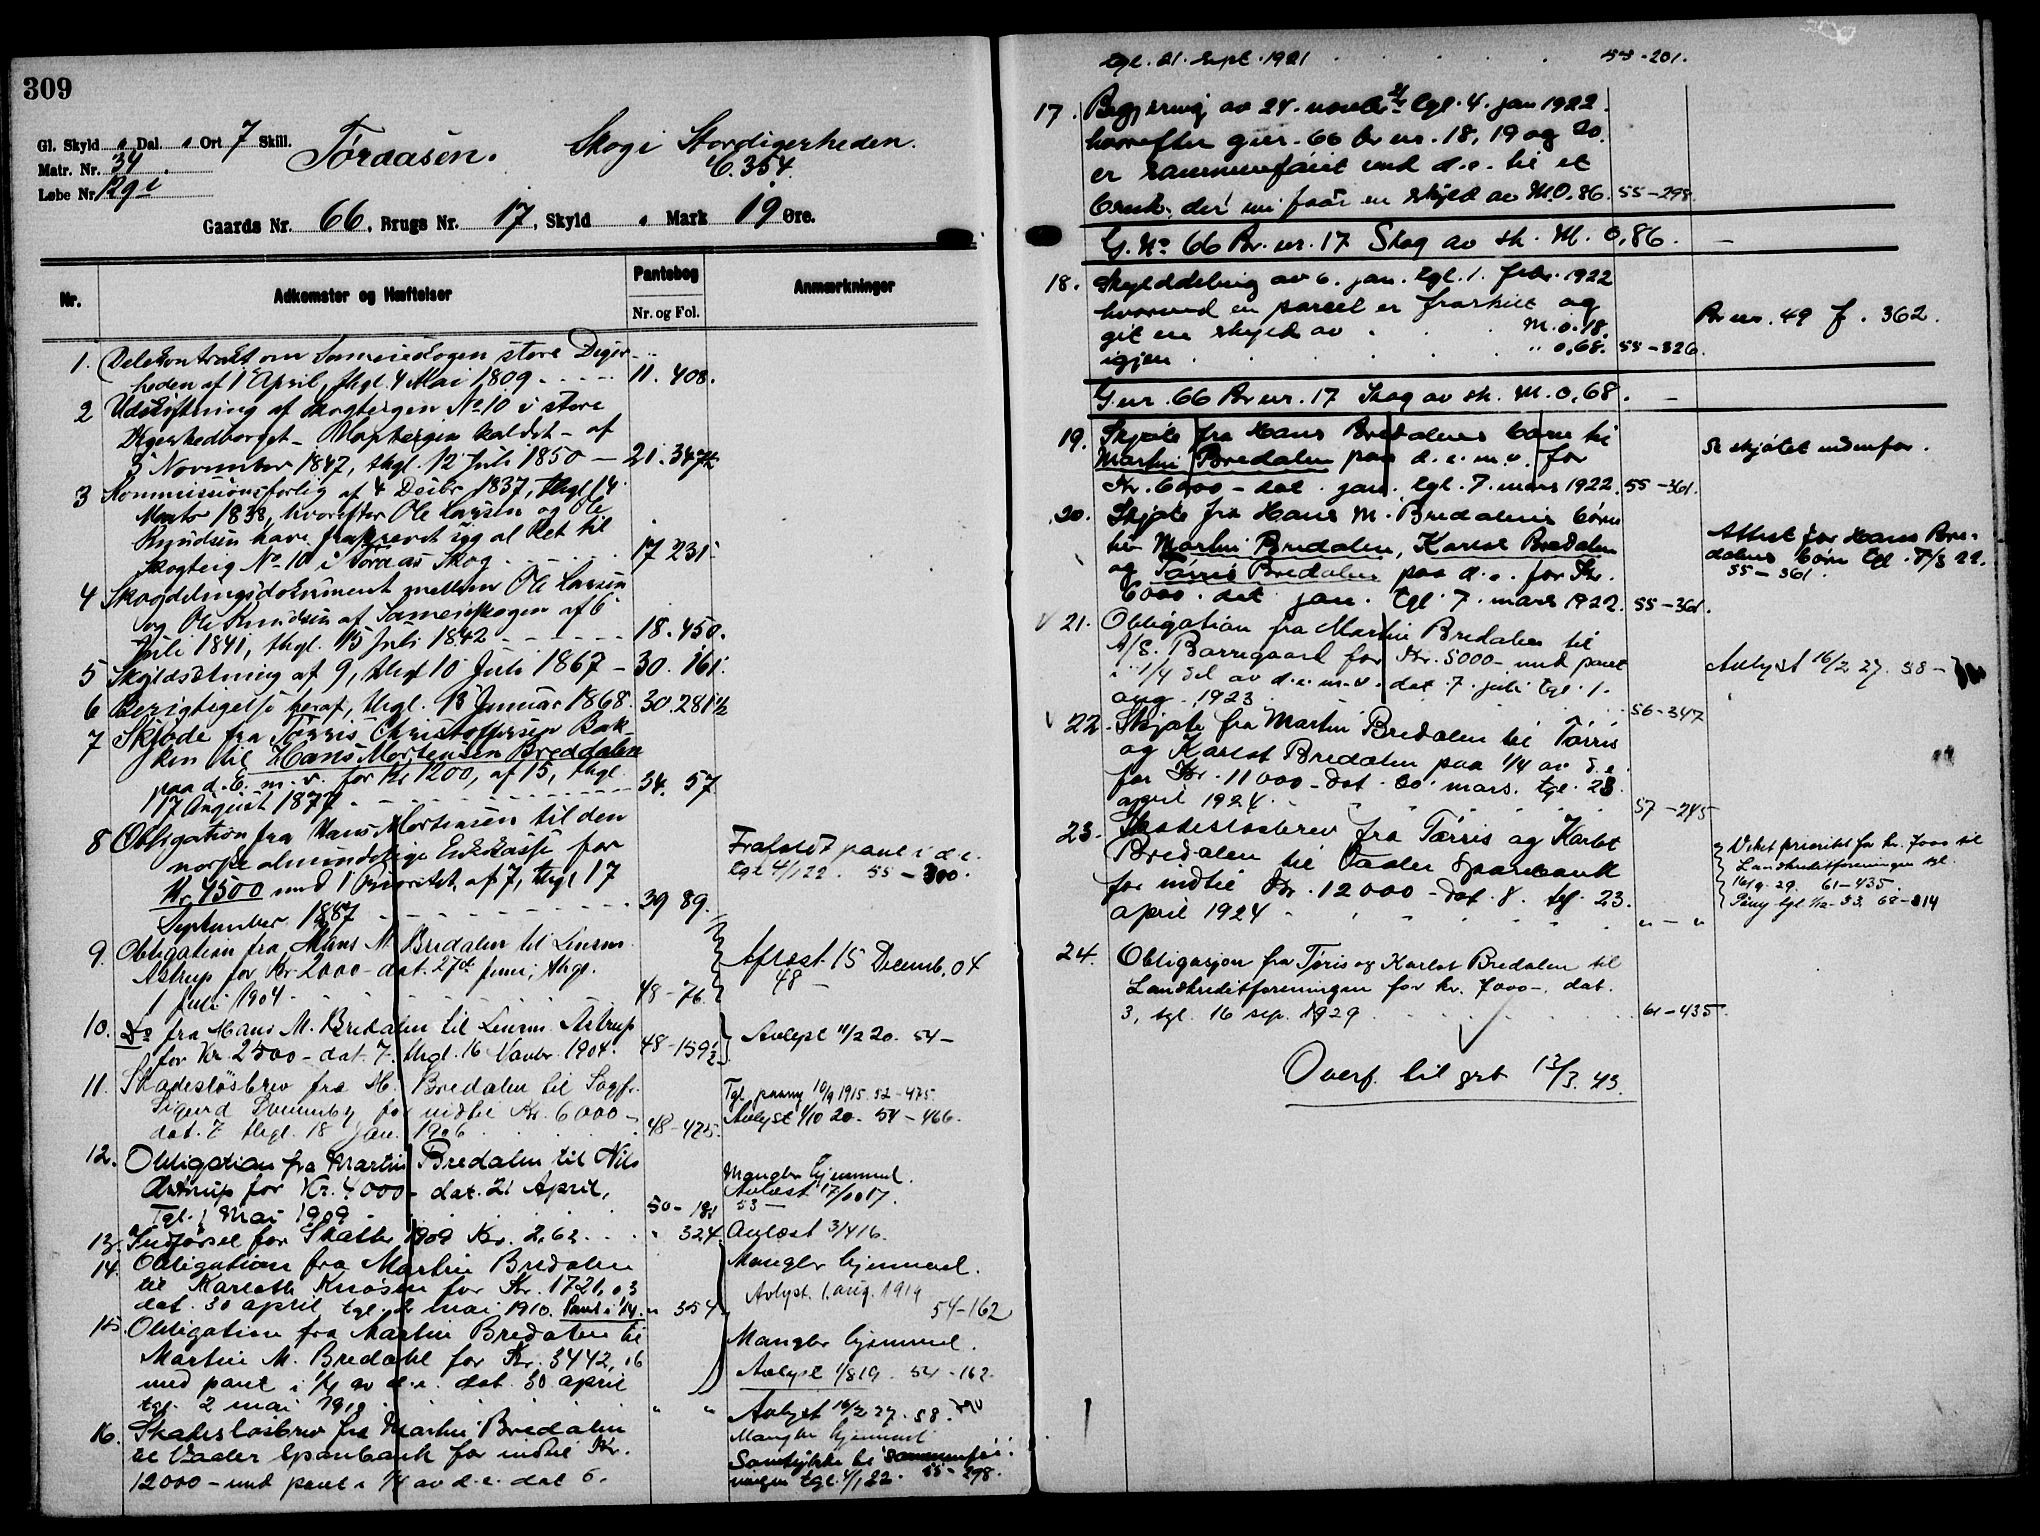 309
Gl. Skyld „ Dal. „ Ort 7 Skill.
Matr. Nr. 34
Løbe Nr. 129 i
Tøraasen. Skog i Stordigerheden.
C. 354.
Gaards Nr. 66, Brugs Nr. 17, Skyld „ Mark 19 Øre.
Nr. Adkomster og Hæftelser Pantebog Nr. og Fol. Anmærkninger
1. Delekontrakt om Sameieskogen store Diger-
heden af 1 April, thgl. 4 Mai 1809 11. 408.
2 Udskiftning af Skogteigen No 10 i store
Digerhedberget - kaldet - af
3 November 1847, thgl. 12 Juli 1850 — 21. 347½
3 Kommissionsforlig af 4 Decbr 1837, thgl 14
Marts 1838, hvorefter Ole Larsen og Ole
Knudsen have fraskrevet sig al Ret til
Skogteig No 10 i Toraas Skog 17 231
4 Skovdelingsdokument mellem Ole Larsen
og Ole Knudsen af Sameieskogen af 6
Juli 1841, thgl. 15 Juli 1842 18. 450.
5 Skyldsetning af 9, thgl 10 Juli 1867 – 30. 161.
6 Berigtigelse heraf, thgl. 13 Januar 1868. 30. 281½
7 Skjøde fra Tørris Christoffersen Bak-
ken til Hans Mortensen Breddalen
paa d. E. m. v. for Kr 1200, af 15, thgl.
17 August 1877 34. 57
8 Obligation fra Hans Mortensen til den
norske almindelige Enkekasse for
Kr. 4500 med 1 Prioritet, af 7, thgl 17
September 1887 39 89.
Frafaldt pant i d. e.
tgl 4/1 22. 55 – 300.
9. Obligation fra Hans M. Bredalen til Lensm.
Astrup for Kr 2000 – dat. 27de Juni, thgl.
1 Juli 1904. 48 – 76.
Aflæst 15 Decemb. 04
48 –
10. Do fra Hans M. Bredalen til Lensm. Astrup
for Kr. 2500 – dat. 7. thgl. 16 Novbr. 1904. 48 – 159½
Avlyst 11/2 20. 54 –
11. Skadesløsbrev fra H. Bredalen til Sagf.
Sigurd for indtil Kr. 6000 –
dat. 7 thgl. 18 Jan. 1906 48 – 425.
Tgl. paany 10/9 1915. 52 – 475.
Avlyst 1/10 20. 54 – 466.
12. Obligation fra Martin Bredalen til Nils
Astrup for Kr. 4000 – dat. 21 April,
Tgl. 1 Mai 1909 50 – 181
Mangler hjemmel.
Avlæst 17/10 17.
53 –
13. Indførsel for Skatter 1909 Kr. 2,62 „ 324. Avlæst 3/4 16.
14. Obligation fra Martin Bredalen
til Karleth Knøsen for Kr. 1721,03
dat. 30 april tgl. 2 mai 1910. Pant i 1/4. „ 354
Mangler hjemmel.
Avlyst. 1. aug. 1919
54 – 162
15. Obligation fra Martin Bredalen til
Martin M. Bredahl for Kr. 3442,16
med pant i 1/4 av d. e. dat. 30 april
tgl. 2 mai 1910. „ „
Mangler hjemmel.
Avlyst 1/8 19. 54 – 162.
16. Skadesløsbrev fra Martin Bredalen
til Vaaler Sparebank for indtil Kr.
12000 – med pant i 1/4 av d. e. dat 6.
Avlyst 16/2 27. 58.
Mangler hjemmel
Samtykke til sammenføi-
ningen tgl. 4/1 22. 55 – 298.
tgl. 21. sept. 1921 55 – 201.
17. Begjæring av 24. novbr. 21 tgl. 4. jan 1922.
hvorefter gnr. 66 br nr. 18, 19 og 20.
er sammenføiet med d. e. til et
bruk. der nu faar en skyld av M. 0.86. 55 – 298.
G. No 66 Br. nr. 17 Skog av sk. M. 0,86. –
18. Skylddeling av 6. jan. tgl. 1. febr. 1922
hvorved en parcel er fraskilt og
git en skyld av M. 0.18.
igjen „ 0,68. 55 – 326.
Br nr. 49 f. 362.
G. nr. 66 Br nr. 17 Skog av sk. M. 0,68. –
19. Skjøte fra Hans Bredalens børn til
Martin Bredalen paa d. e. m. v. for
Kr. 6000 – dat. jan. tgl. 7. mars 1922. 55 – 361.
Se skjøtet nedenfor.
20. Skjøte fra Hans M. Bredalens børn
til Martin Bredalen, Karlot Bredalen
og Tørris Bredalen paa d. e. for Kr.
6000. dat jan. tgl. 7. mars 1922. 55 – 361.
Attest for Hans Bre-
dalens børn tgl. 7/3 22.
55 – 361.
21. Obligation fra Martin Bredalen til
A/S. Borregaard for Kr. 5000 – med pant
i 1/4 del av d. e. m. v. dat. 7. juli tgl. 1.
aug. 1923. 56 – 347
Avlyst 16/2 27. 58 –
22. Skjøte fra Martin Bredalen til Tørris
og Karlot Bredalen paa 1/4 av d. e.
for Kr. 11000 – dat. 20. mars. tgl. 23
april 1924. 57 – 245
23. Skadesløsbrev fra Tørris og Karlot
Bredalen til Vaaler Sparebank
for indtil Kr. 12000 – dat. 8. tgl. 23.
april 1924 „ – „
Veket prioritet for kr. 7000 til
Landkreditforeningen tgl.
16/9 29. 61 – 435.
Påny tgl. 1/12 – 33. 68 – 814
24. Obligasjon fra Tøris og Karlot Bredalen til
Landkreditforeningen for kr. 7000 –. dat.
3, tgl. 16 sep. 1929 61 – 435.
Overf. til grb 13/3. 43.